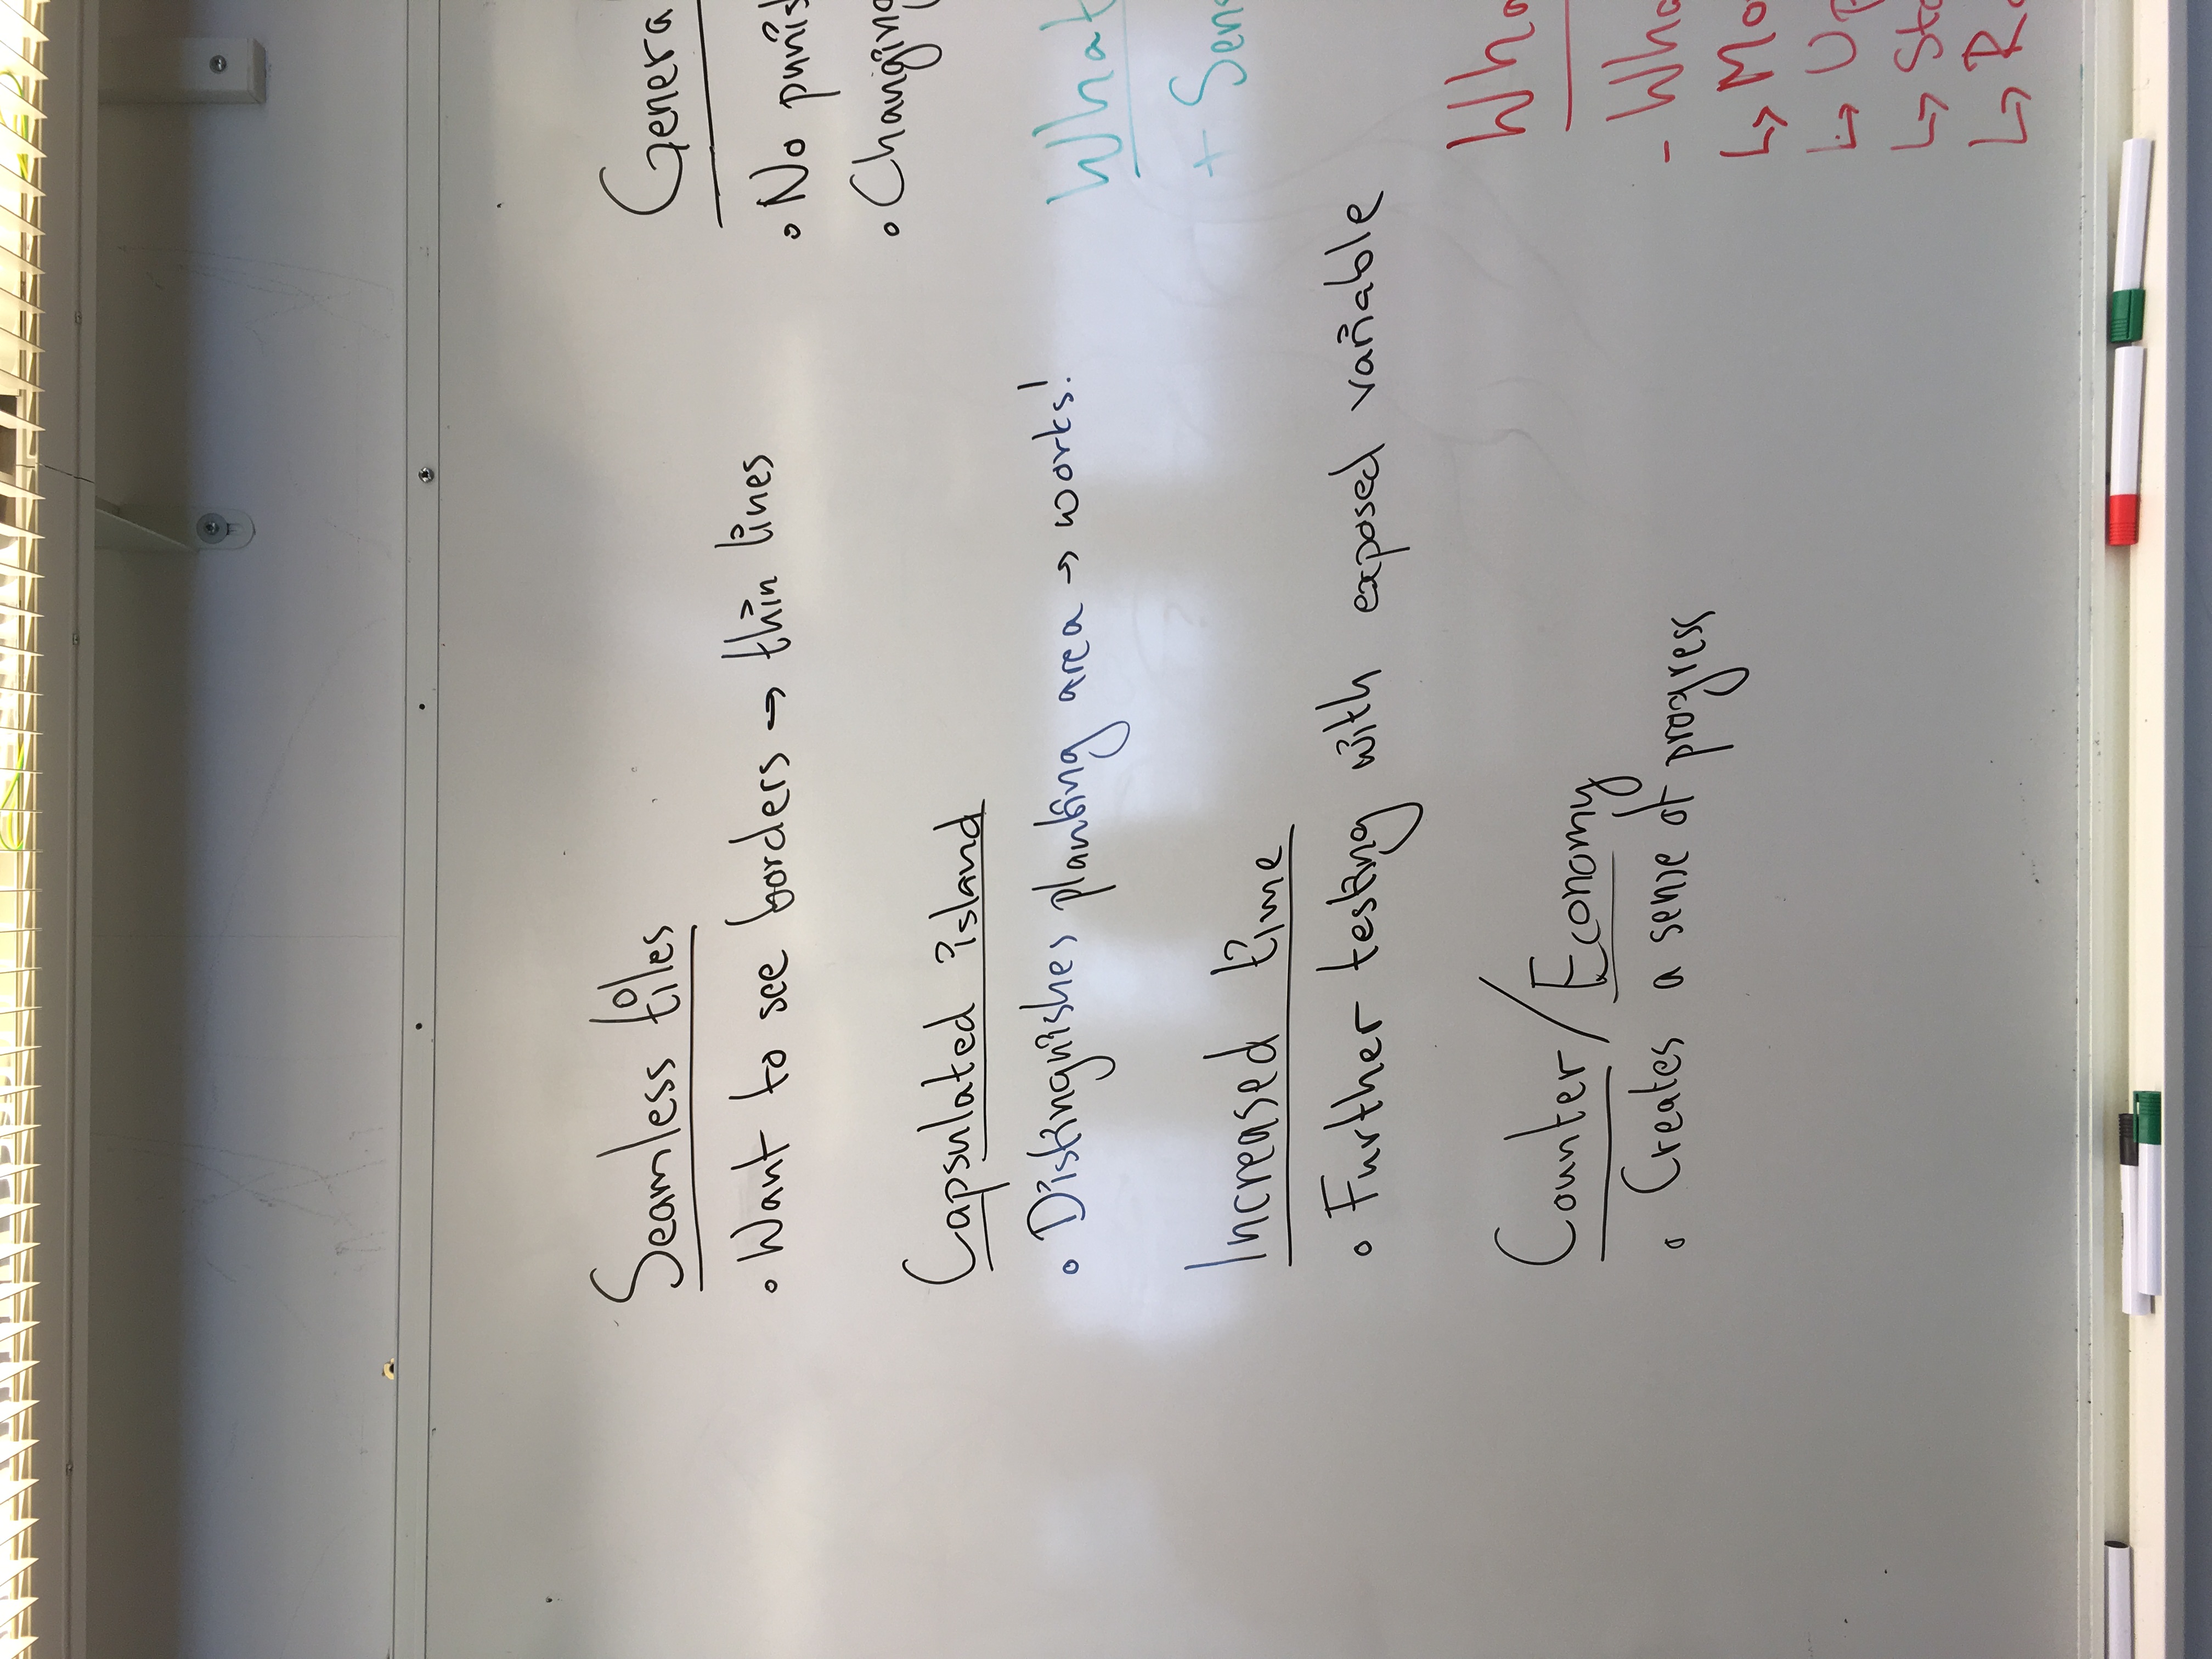 Seamless tiles
• Want to see borders → thin lines
Capsulated island
• Distinguishes planting area → works!
Increased time
• Further testing with exposed variable
Counter/Economy
• Creates a sense of progress
Genera
• No punis
• Changing
What
+ Sens
Wha
- Wha
↳ Mo
↳ Up
↳ Sto
↳ R